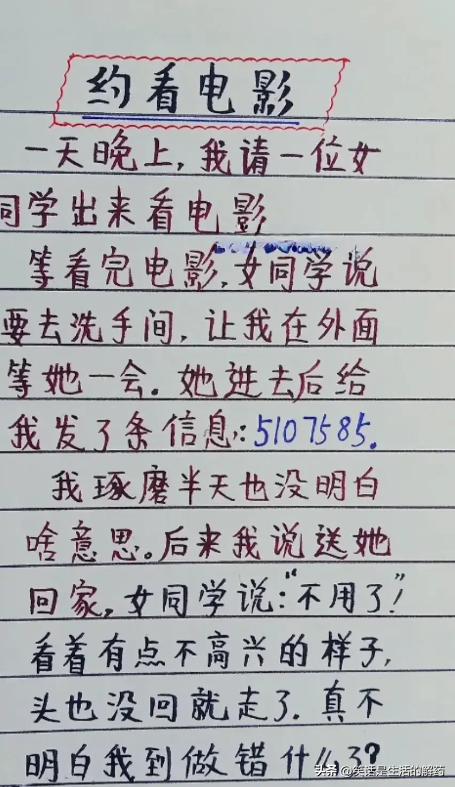 约看电影
一天晚上，我请一位女
同学出来看电影
等看完电影，女同学说
要去洗手间，让我在外面
等她一会．她进去后给
我发了条信息：5107585．
我琢磨半天也没明白
啥意思。后来我说送她
回家，女同学说：“不用了”！
看着有点不高兴的样子，
头也没回就走了．真不
明白我到做错什么了？
头条 @笑话是生活的解药